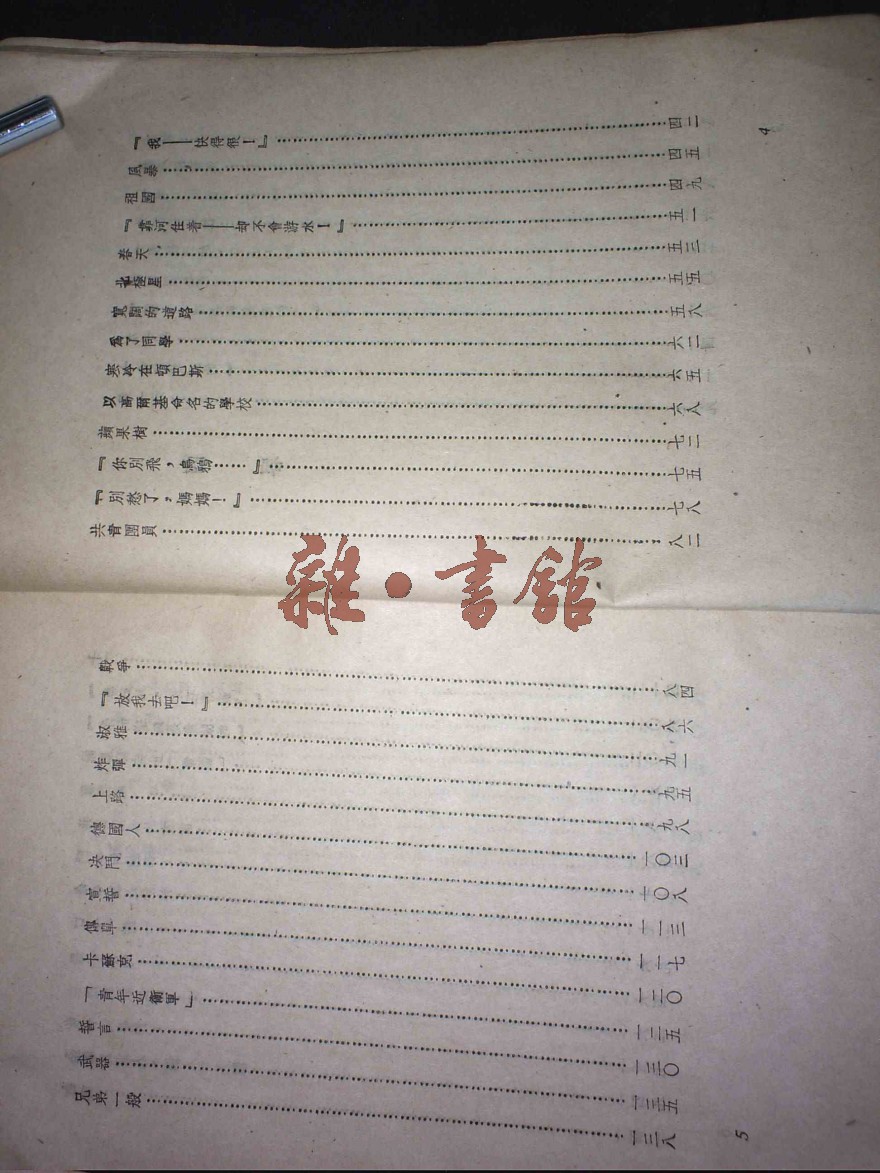 『我——快得很！』 四二
風暴 四五
祖國 四九
『靠河住着——却不會游水！』 五一
春天 五三
北極星 五五
寬闊的道路 五八
爲了同學 六二
寒冷在頓巴斯 六五
以高爾基命名的學校 六八
蘋果樹 七二
『你別飛，烏鴉……』 七五
『別愁了，媽媽！』 七八
共青團員 八二
4
戰爭 八四
『放我去吧！』 八六
淑雅 九一
炸彈 九五
上路 九八
德國人 一〇三
决鬥 一〇八
宣誓 一一三
傳單 一一七
卡蘇克 一二〇
「青年近衞軍」 一二五
誓言 一三〇
武器 一三五
兄弟一般 一三八
5
雜·書館